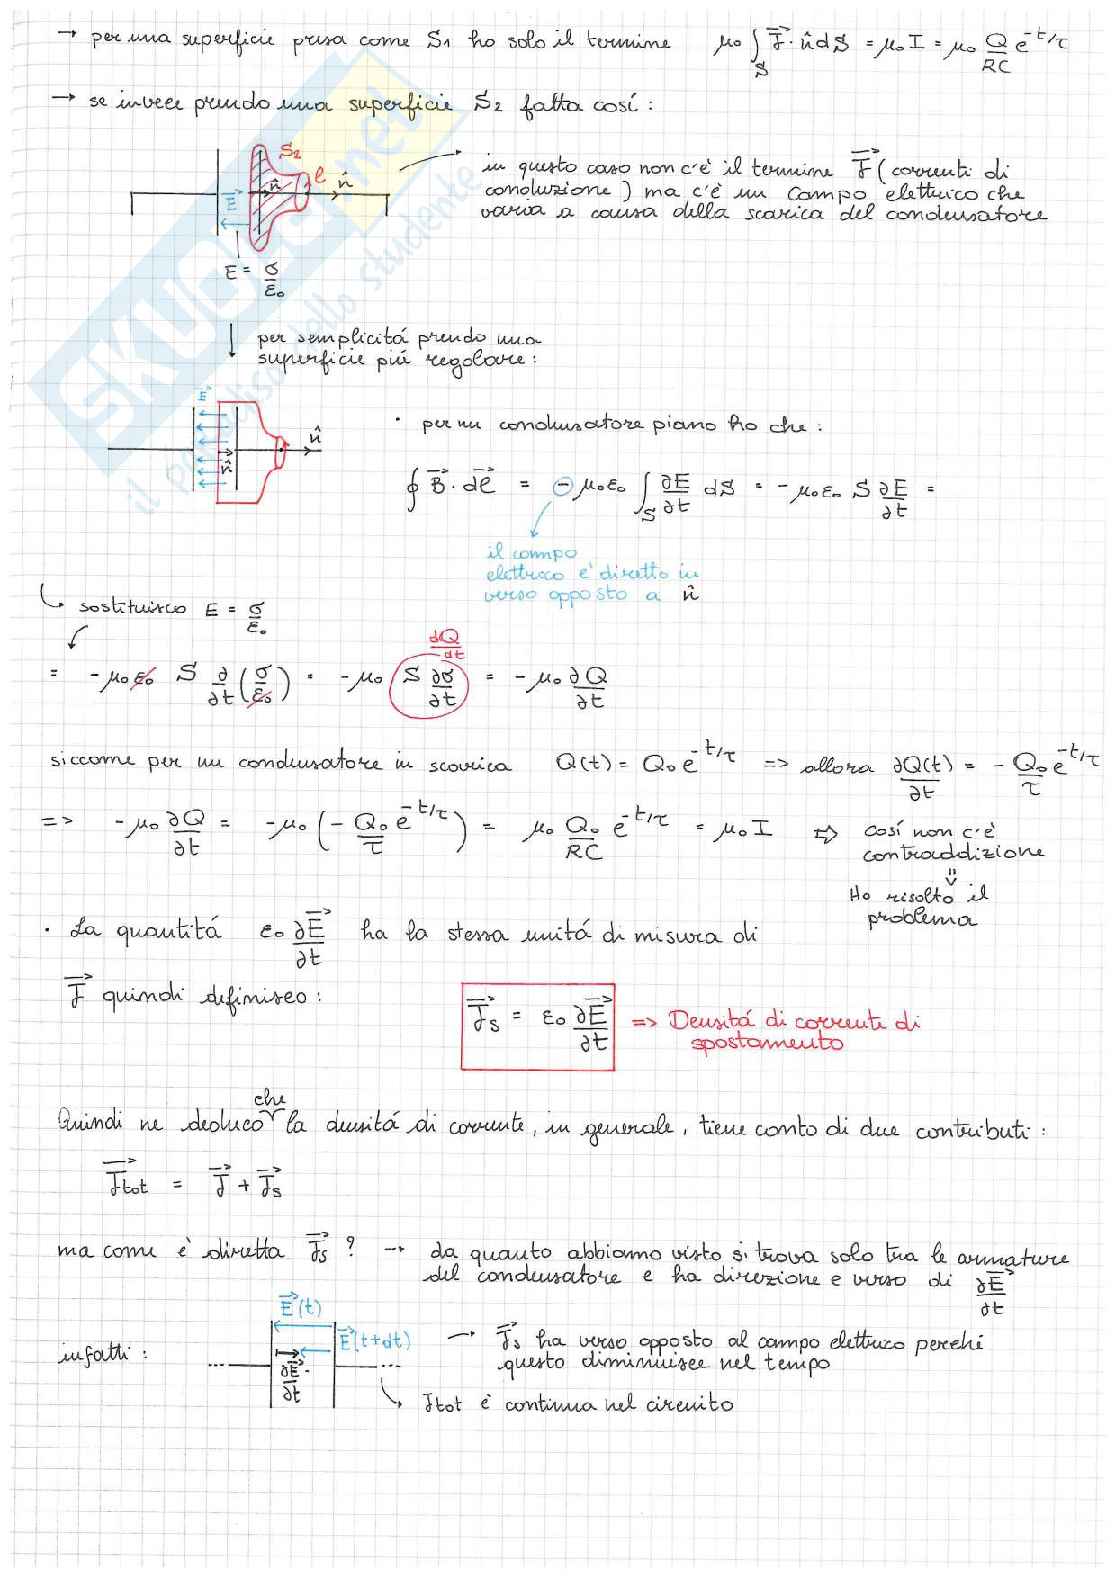 → per una superficie presa come S₁ ho solo il termine μ₀ ∫_S J⃗ · n̂ dS = μ₀ I = μ₀ Q/RC e^(-t/τ)
→ se invece prendo una superficie S₂ fatta cosí :
S₂
l
n̂
n̂
E⃗
E = σ/ε₀
in questo caso non c'è il termine J⃗ (correnti di
conduzione) ma c'è un campo elettrico che
varia a causa della scarica del condensatore
SKUOLA.net
il paradiso dello studente
per semplicitá prendo una
superficie piú regolare :
E⃗
n̂
n̂
· per un condensatore piano ho che :
∮ B⃗ · dl⃗ = - μ₀ε₀ ∫_S ∂E/∂t dS = - μ₀ε₀ S ∂E/∂t =
il campo
elettrico é diretto in
verso opposto a n̂
↳ sostituisco E = σ/ε₀
= - μ₀ε₀ S ∂/∂t (σ/ε₀) = - μ₀ S ∂σ/∂t = - μ₀ ∂Q/∂t
dQ/dt
siccome per un condensatore in scarica Q(t) = Q₀ e^(-t/τ) => allora ∂Q(t)/∂t = - Q₀/τ e^(-t/τ)
=> - μ₀ ∂Q/∂t = - μ₀ (- Q₀/τ e^(-t/τ)) = μ₀ Q₀/RC e^(-t/τ) = μ₀ I ⇨ cosí non c'é
contraddizione
⇓
Ho risolto il
problema
· La quantitá ε₀ ∂E⃗/∂t ha la stessa unitá di misura di
J⃗ quindi definisco :
J⃗s = ε₀ ∂E⃗/∂t => Densitá di corrente di
spostamento
Quindi ne deduco che la densitá di corrente, in generale, tiene conto di due contributi :
J⃗tot = J⃗ + J⃗s
ma come é diretta J⃗s ? → da quanto abbiamo visto si trova solo tra le armature
del condensatore e ha direzione e verso di ∂E⃗/∂t
infatti :
E⃗(t)
E⃗(t+dt)
∂E⃗/∂t
→ J⃗s ha verso opposto al campo elettrico perché
questo diminuisce nel tempo
↳ Jtot é continua nel circuito